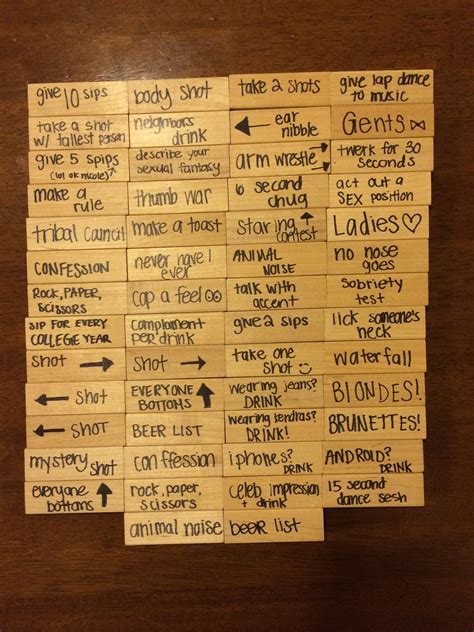 give 10 sips
body shot
take 2 shots
give lap dance
to music
take a shot
w/ tallest person
neighbors
drink
← ear
nibble
Gents
give 5 spips
(lol ok nicole)
describe your
sexual fantasy
arm wrestle
twerk for 30
seconds
make a
rule
thumb war
6 second
chug
act out a
SEX position
tribal council
make a toast
staring ↑
contest
Ladies ♡
CONFESSION
never have I
ever
ANIMAL
NOISE
no nose
goes
ROCK, PAPER,
SCISSORS
cop a feel
talk with
accent
sobriety
test
SIP FOR EVERY
COLLEGE YEAR
complament
PER drink
give 2 sips
lick someone's
neck
shot →
shot →
take one
shot ☺
waterfall
← shot
EVERYONE ↑
BOTTOMS
wearing jeans?
DRINK
BLONDES!
← SHOT
BEER LIST
wearing kendras?
DRINK!
BRUNETTES!
mystery shot
confession
iphones?
DRINK
ANDROID?
DRINK
everyone ↑
bottoms
rock, paper,
scissors
celeb impression
+ drink
15 second
dance sesh
animal noise
beer list